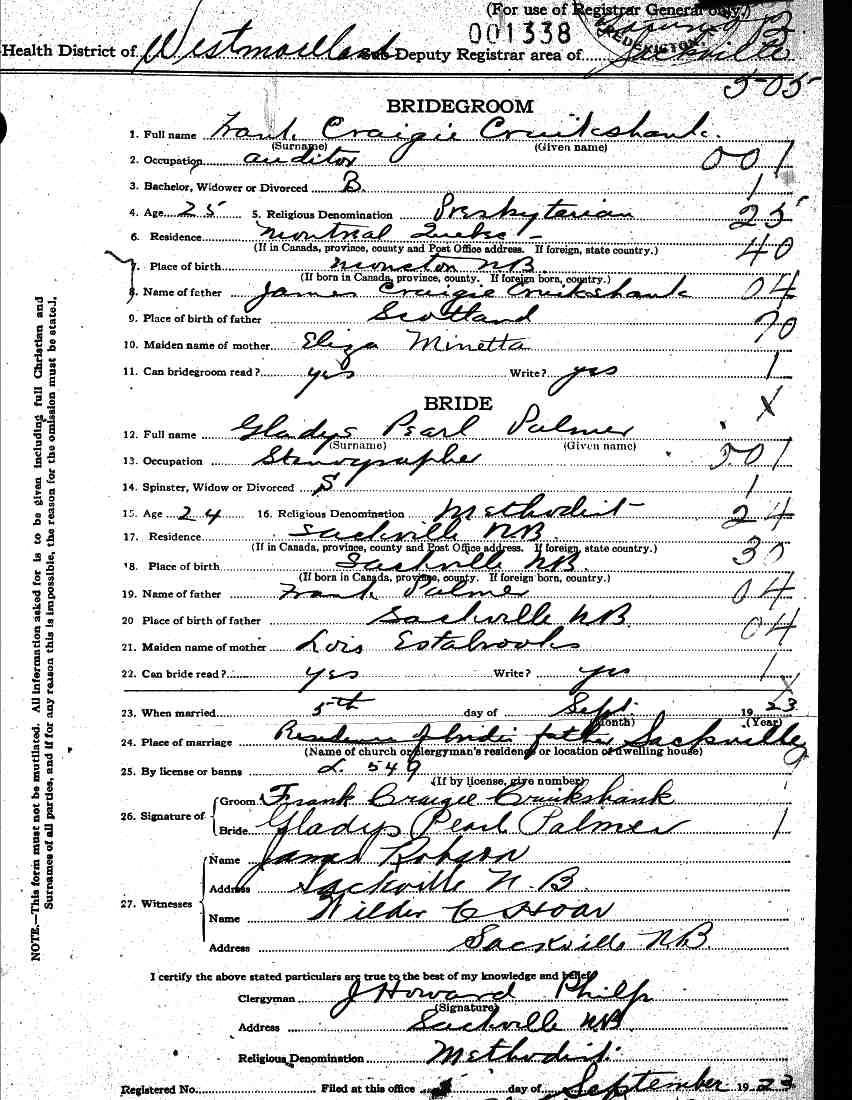 (For use of Registrar General only.)
001338
Health District of Westmorland Sub-Deputy Registrar area of Sackville
505
BRIDEGROOM
1. Full name Frank Craigie Cruikshank.
(Surname) (Given name)
2. Occupation auditor 001
3. Bachelor, Widower or Divorced B. 1
4. Age 25 5. Religious Denomination Presbyterian 25
6. Residence Montreal Quebec 40
(If in Canada, province, county and Post Office address. If foreign, state country.)
7. Place of birth Moncton NB
(If born in Canada, province, county. If foreign born, country.)
8. Name of father James Craigie Cruikshank 04
9. Place of birth of father Scotland 70
10. Maiden name of mother Eliza Minetta
11. Can bridegroom read? yes Write? yes 1
BRIDE X
12. Full name Gladys Pearl Palmer
(Surname) (Given name)
13. Occupation Stenographer 501
14. Spinster, Widow or Divorced S 1
15. Age 24 16. Religious Denomination Methodist 24
17. Residence Sackville NB.
(If in Canada, province, county and Post Office address. If foreign, state country.)
18. Place of birth Sackville NB. 30
(If born in Canada, province, county. If foreign born, country.)
19. Name of father Frank Palmer 04
20 Place of birth of father Sackville NB. 04
21. Maiden name of mother Lois Estabrooks
22. Can bride read? yes Write? yes 1
23. When married 5th day of Sept. 1923
(Month) (Year)
24. Place of marriage Residence of brides father Sackville
(Name of church or clergyman's residence or location of dwelling house)
25. By license or banns L. 549
(If by license, give number)
26. Signature of
Groom Frank Craigie Cruikshank
Bride Gladys Pearl Palmer 1
27. Witnesses
Name James Robson
Address Sackville N.B.
Name Wilder C Hoar
Address Sackville NB.
I certify the above stated particulars are true to the best of my knowledge and belief.
Clergyman J Howard Philp
(Signature)
Address Sackville NB
Religious Denomination Methodist.
Registered No. Filed at this office day of September 1923
NOTE.—This form must not be mutilated. All information asked for is to be given including full Christian and
Surnames of all parties, and if for any reason this is impossible, the reason for the omission must be stated.